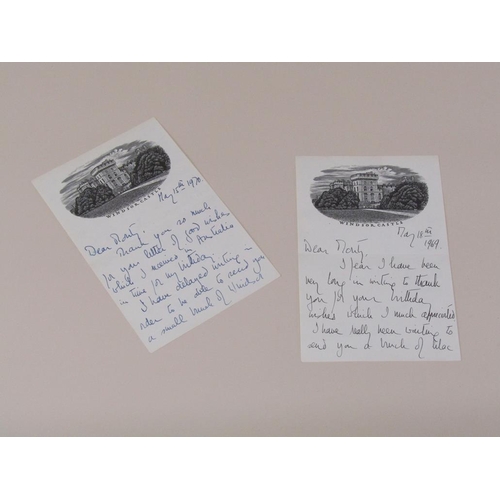 WINDSOR CASTLE
May 15th 1970
Dear Monty,
Thank you so much
for your letter of good wishes
which I received in Australia
in time for my birthday
I have delayed writing in
order to be able to send you
a small bunch of
WINDSOR CASTLE
May 18th
1969.
Dear Monty,
I fear I have been
very long in writing to thank
you for your birthday
wishes which I much appreciated
I have really been waiting to
send you a bunch of lilac